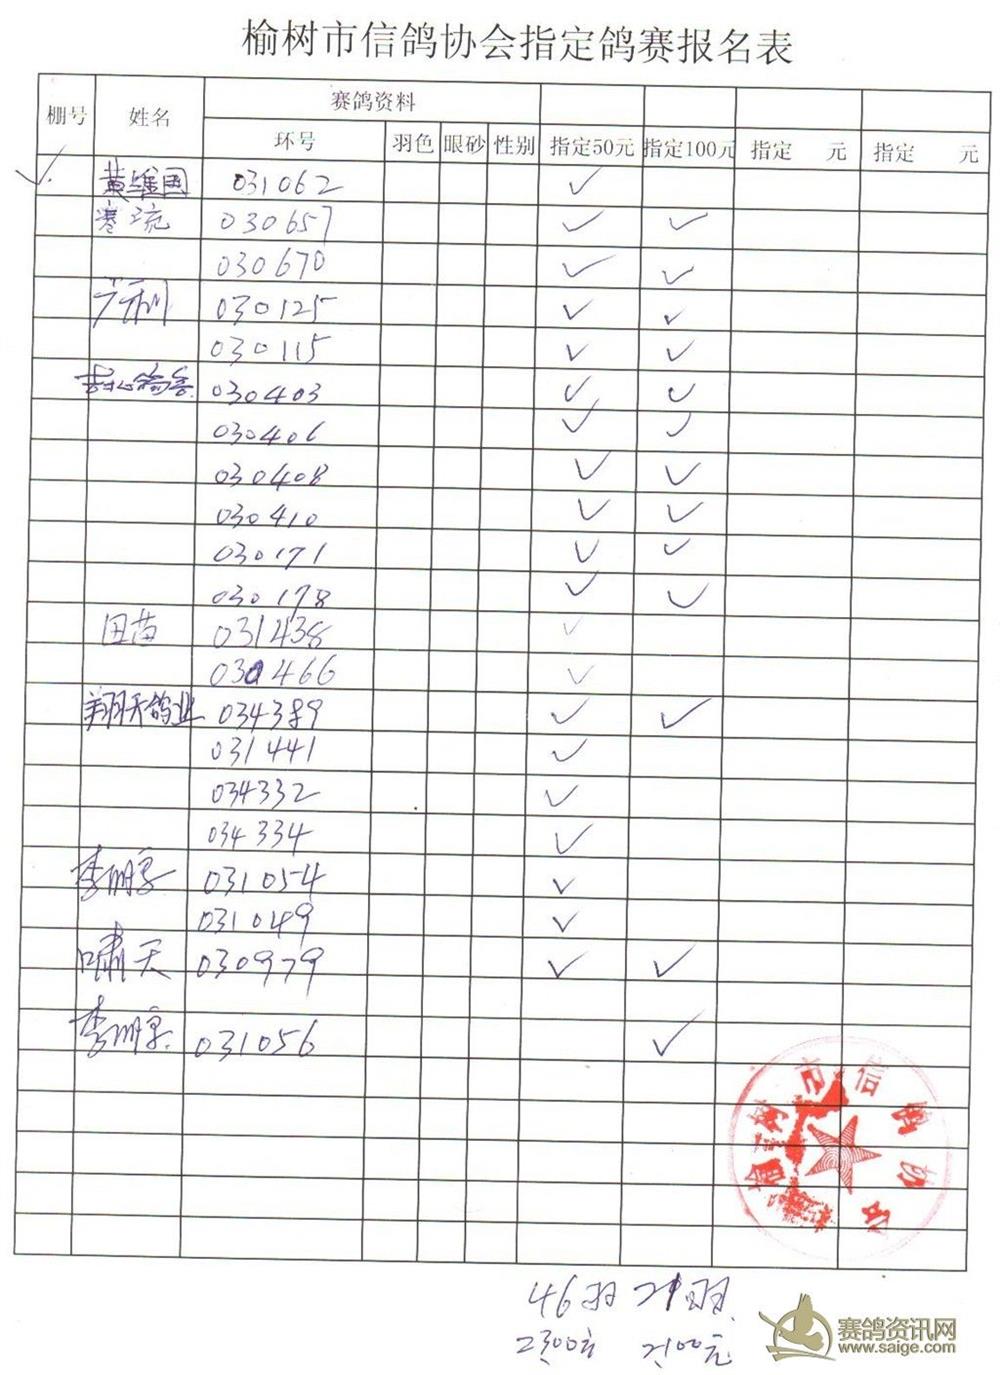 榆树市信鸽协会指定鸽赛报名表
棚号 姓名 赛鸽资料
环号 羽色 眼砂 性别 指定50元 指定100元 指定 元 指定 元
✓ 黄维国 031062 ✓
寒流 030657 ✓ ✓
030670 ✓ ✓
030125 ✓ ✓
030115 ✓ ✓
030403 ✓ ✓
030406 ✓ ✓
030408 ✓ ✓
030410 ✓ ✓
030171 ✓ ✓
030178 ✓ ✓
田苗 031438 ✓
030466 ✓
翔天鸽业 034389 ✓ ✓
031441 ✓
034332 ✓
034334 ✓
031054 ✓
031049 ✓
啸天 030979 ✓ ✓
031056 ✓
榆树市信鸽协会
46羽 21羽
2300元 2100元
赛鸽资讯网
www.saige.com